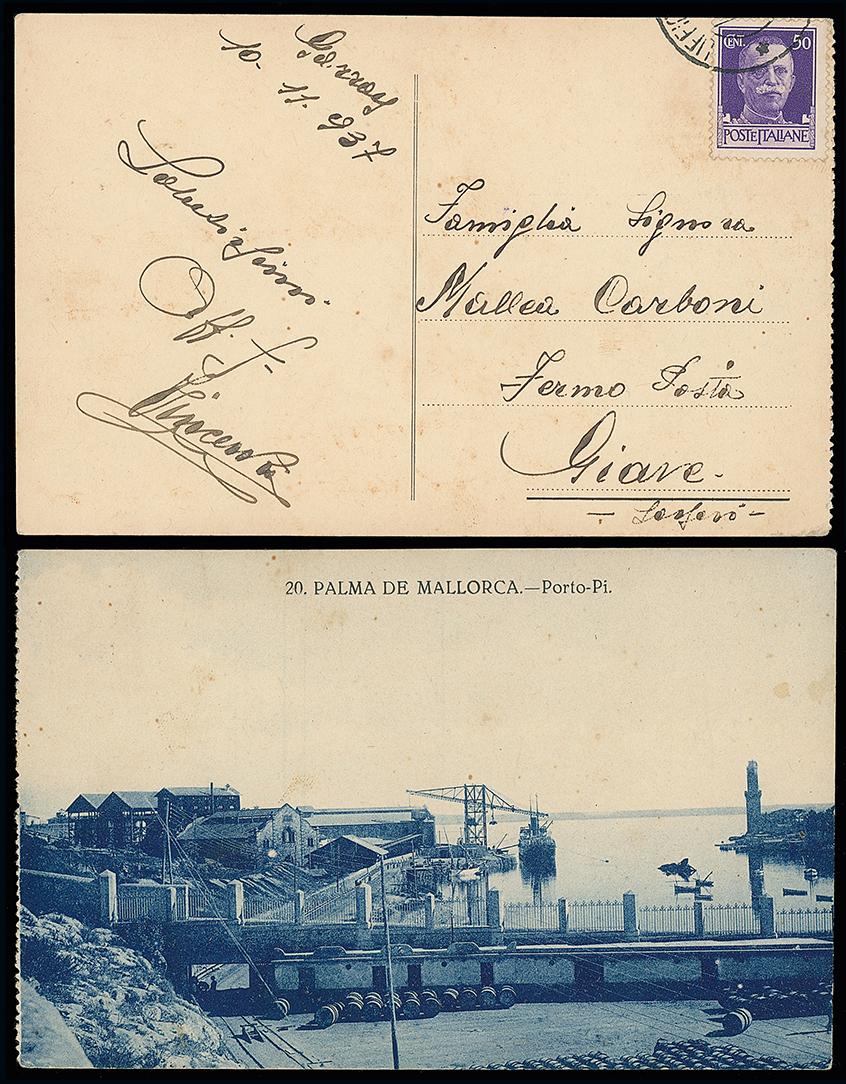 10. 11. 937
Salutissimi
Aff.
Vincenzo
UFFIC
CENT. 50
POSTE ITALIANE
Famiglia Signora
Mallea Carboni
Fermo Posta
Giave.
20. PALMA DE MALLORCA.—Porto-Pi.